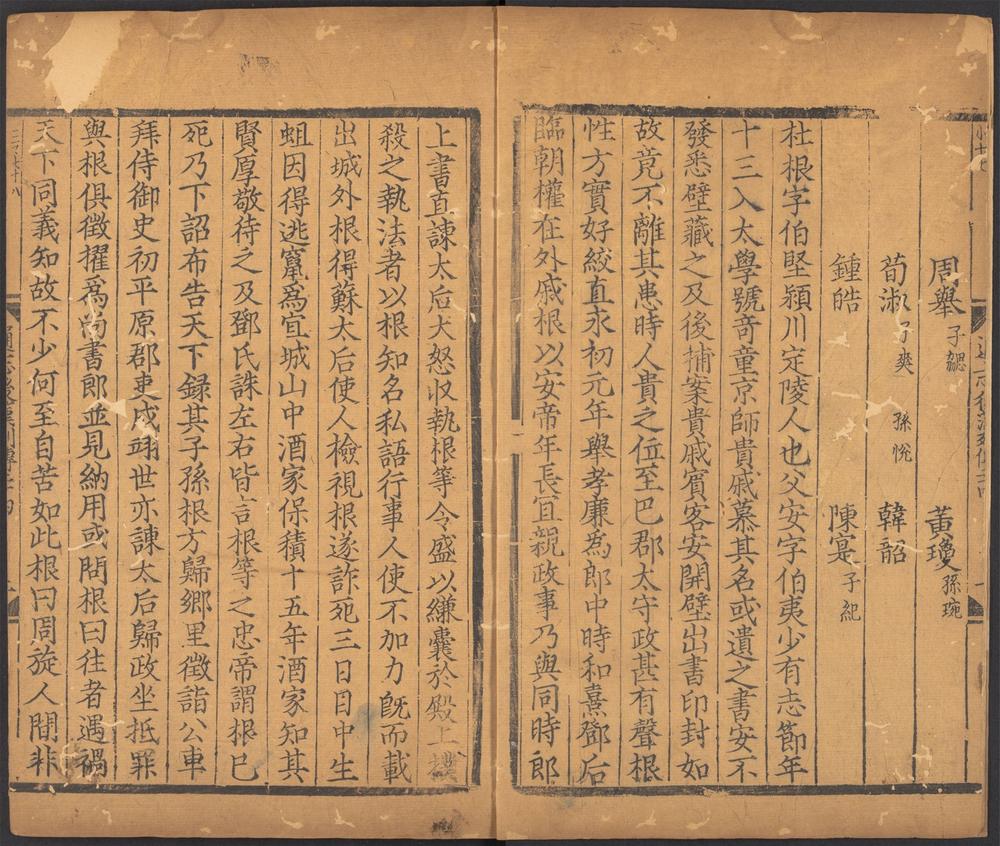 周舉 子勰 黃瓊 孫琬
荀淑 子爽 孫悅 韓韶
鍾皓 陳寔 子紀
杜根字伯堅潁川定陵人也父安字伯夷少有志節年
十三入太學號奇童京師貴戚慕其名或遺之書安不
發悉壁藏之及後捕案貴戚賓客安開壁出書印封如
故竟不離其患時人貴之位至巴郡太守政甚有聲根
性方實好絞直永初元年舉孝廉為郎中時和熹鄧后
臨朝權在外戚根以安帝年長宜親政事乃與同時郎
上書直諫太后大怒收執根等令盛以縑囊於殿上撲
殺之執法者以根知名私語行事人使不加力既而載
出城外根得蘇太后使人檢視根遂詐死三日目中生
蛆因得逃竄為宜城山中酒家保積十五年酒家知其
賢厚敬待之及鄧氏誅左右皆言根等之忠帝謂根已
死乃下詔布告天下録其子孫根方歸鄉里徵詣公車
拜侍御史初平原郡吏成翊世亦諫太后歸政坐抵罪
與根俱徵擢為尚書郎並見納用或問根曰往者遇禍
天下同義知故不少何至自苦如此根曰周旋人間非